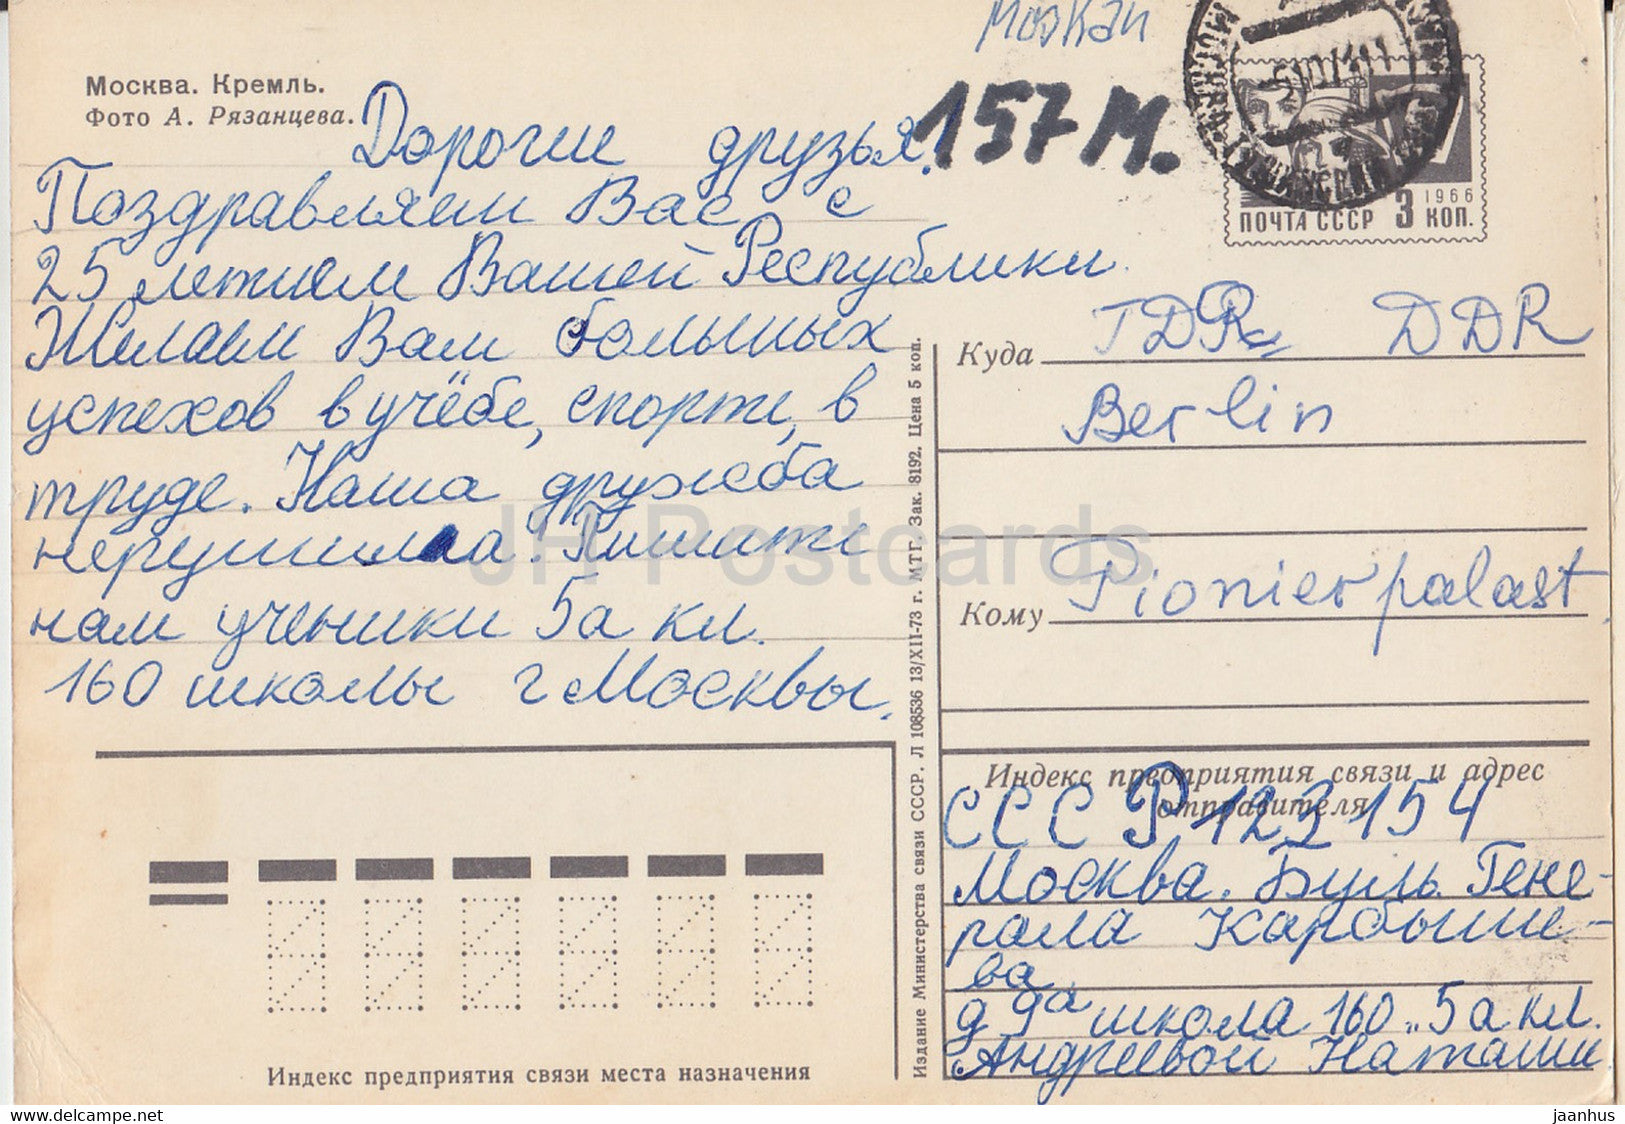 Москва. Кремль.
Фото А. Рязанцева.
Москаи
157 М.
ПОЧТА СССР 3 КОП.
1966
Дорогие друзья!
Поздравляем Вас с
25 летием Вашей Республики.
Желаем Вам больших
успехов в учёбе, спорте, в
труде. Наша дружба
нерушима! Пишите
нам ученики 5а кл.
160 школы г Москвы.
Куда DDR DDR
Berlin
Кому Pionierpalast
Индекс предприятия связи и адрес
отправителя
СССР 123154
Москва. Буль. Гене-
рала Карбыше-
ва
д 9а школа 160 „5а кл.
Андреевой Наташи
Издание Министерства связи СССР. Л 108536 13/XII-73 г. МТГ. Зак. 8192. Цена 5 коп.
Индекс предприятия связи места назначения
JH Postcards
www.delcampe.net
jaanhus